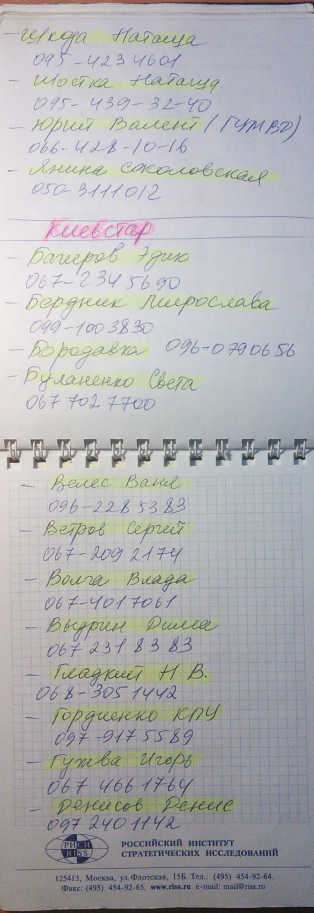 - Шкода Наташа
095-4234601
- Шостка Наташа
095-439-32-40
- Юрий Валент (ГУМВД)
066-428-10-16
- Янина Соколовская
050-3111012
Киевстар
- Багиров Эдик
067-2345690
- Бердник Мирослава
099-1003830
- Бородавка 096-0790656
- Буланенко Света
067 702 7700
- Велес Ваня
096-2285383
- Ветров Сергей
067-2092174
- Волга Влада
067-4017061
- Выдрин Дима
067 231 83 83
- Гладкий Н.В.
068-3051442
- Гордиенко КПУ
097-9175589
- Гужва Игорь
067 4661764
- Денисов Денис
097 2401142
РИСИ
RISS
РОССИЙСКИЙ ИНСТИТУТ
СТРАТЕГИЧЕСКИХ ИССЛЕДОВАНИЙ
125413, Москва, ул.Флотская, 15Б. Тел.: (495) 454-92-64.
Факс: (495) 454-92-65. www.riss.ru e-mail: mail@riss.ru